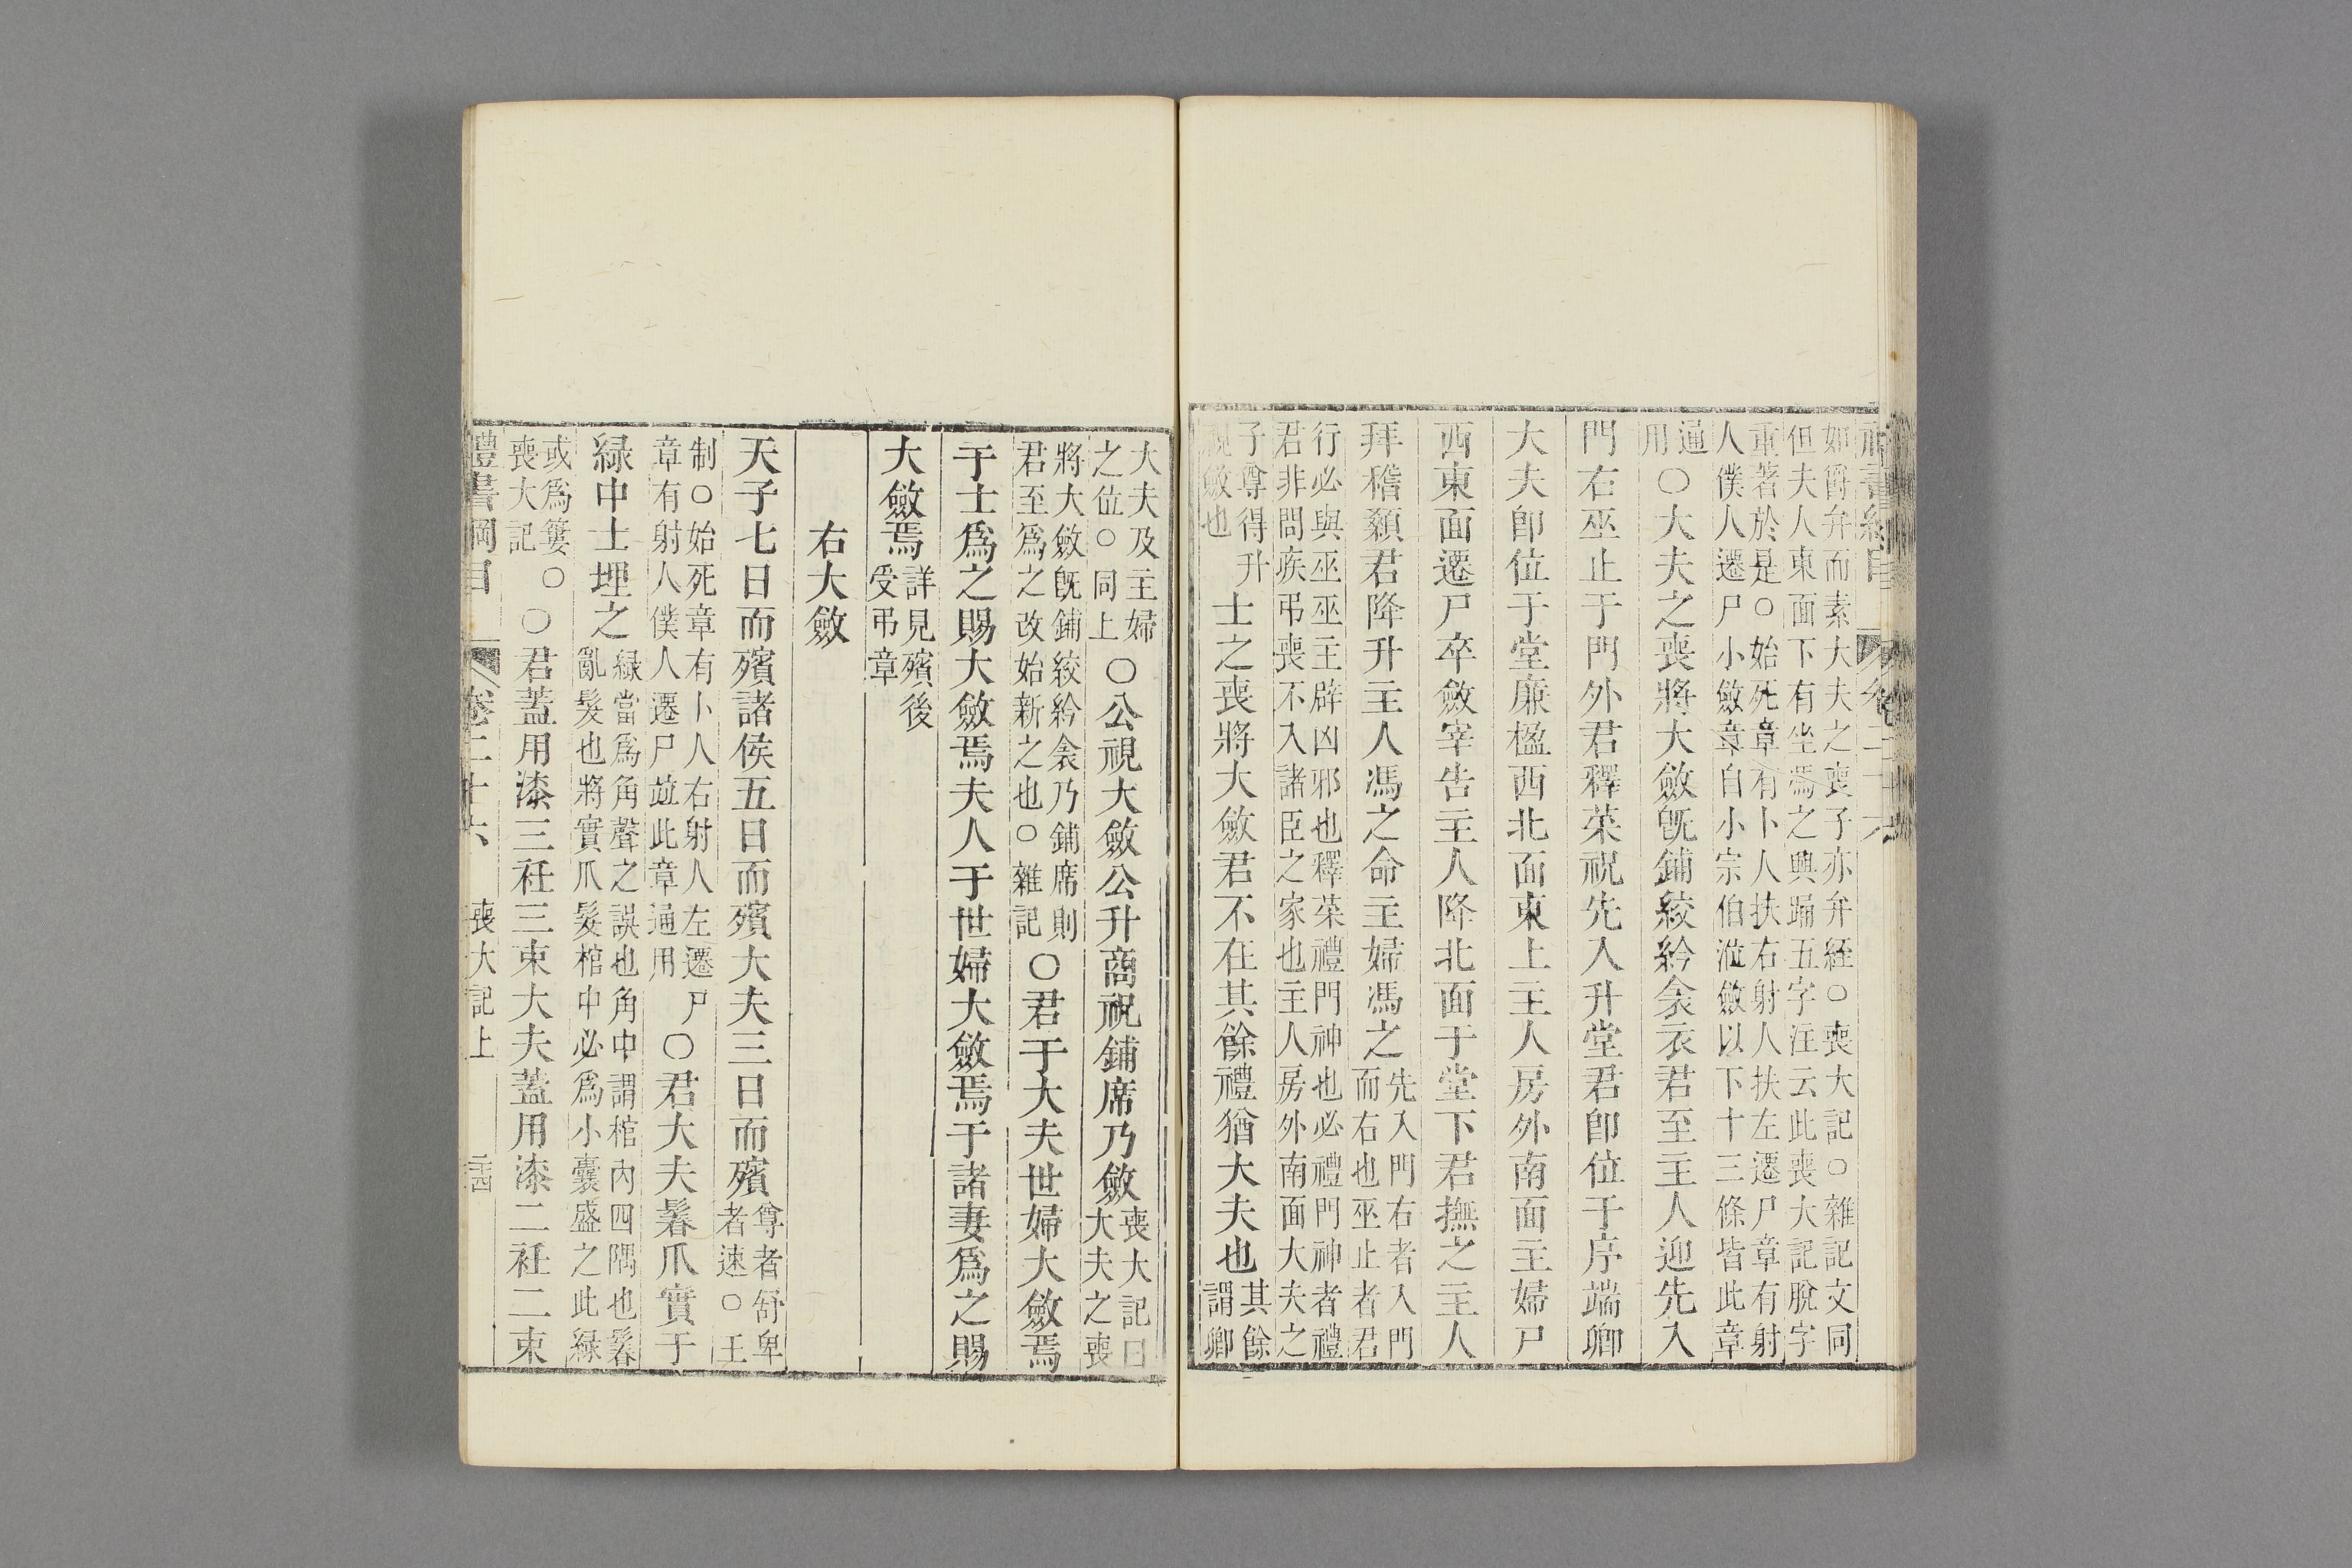 如爵弁而素大夫之喪子亦弁絰○喪大記○雜記文同
但夫人東面下有坐馮之興踊五字注云此喪大記脫字
重著於是○始死章有卜人扶右射人扶左遷尸章有射
人僕人遷尸小斂章自小宗伯涖斂以下十三條皆此章
通
用○大夫之喪將大斂既鋪絞紟衾衣君至主人迎先入
門右巫止于門外君釋菜祝先入升堂君卽位于序端卿
大夫卽位于堂廉楹西北面東上主人房外南面主婦尸
西東面遷尸卒斂宰告主人降北面于堂下君撫之主人
拜稽顙君降升主人馮之命主婦馮之先入門右者入門
而右也巫止者君
行必與巫巫主辟凶邪也釋菜禮門神也必禮門神者禮
君非問疾弔喪不入諸臣之家也主人房外南面大夫之
子尊得升
視斂也
士之喪將大斂君不在其餘禮猶大夫也其餘
謂卿
大夫及主婦
之位○同上
○公視大斂公升商祝鋪席乃斂喪大記曰
大夫之喪
將大斂旣鋪絞紟衾乃鋪席則
君至爲之改始新之也○雜記
○君于大夫世婦大斂焉
于士爲之賜大斂焉夫人于世婦大斂焉于諸妻爲之賜
大斂焉詳見殯後
受弔章
右大斂
天子七日而殯諸侯五日而殯大夫三日而殯尊者舒卑
者速○王
制○始死章有卜人右射人左遷尸
章有射人僕人遷尸竝此章通用
○君大夫鬊爪實于
綠中士埋之綠當爲角聲之誤也角中謂棺內四隅也鬊
亂髮也將實爪髮棺中必爲小囊盛之此綠
或爲簍○
喪大記
○君蓋用漆三衽三束大夫蓋用漆二衽二束
禮書綱目
卷二十六
喪大記上